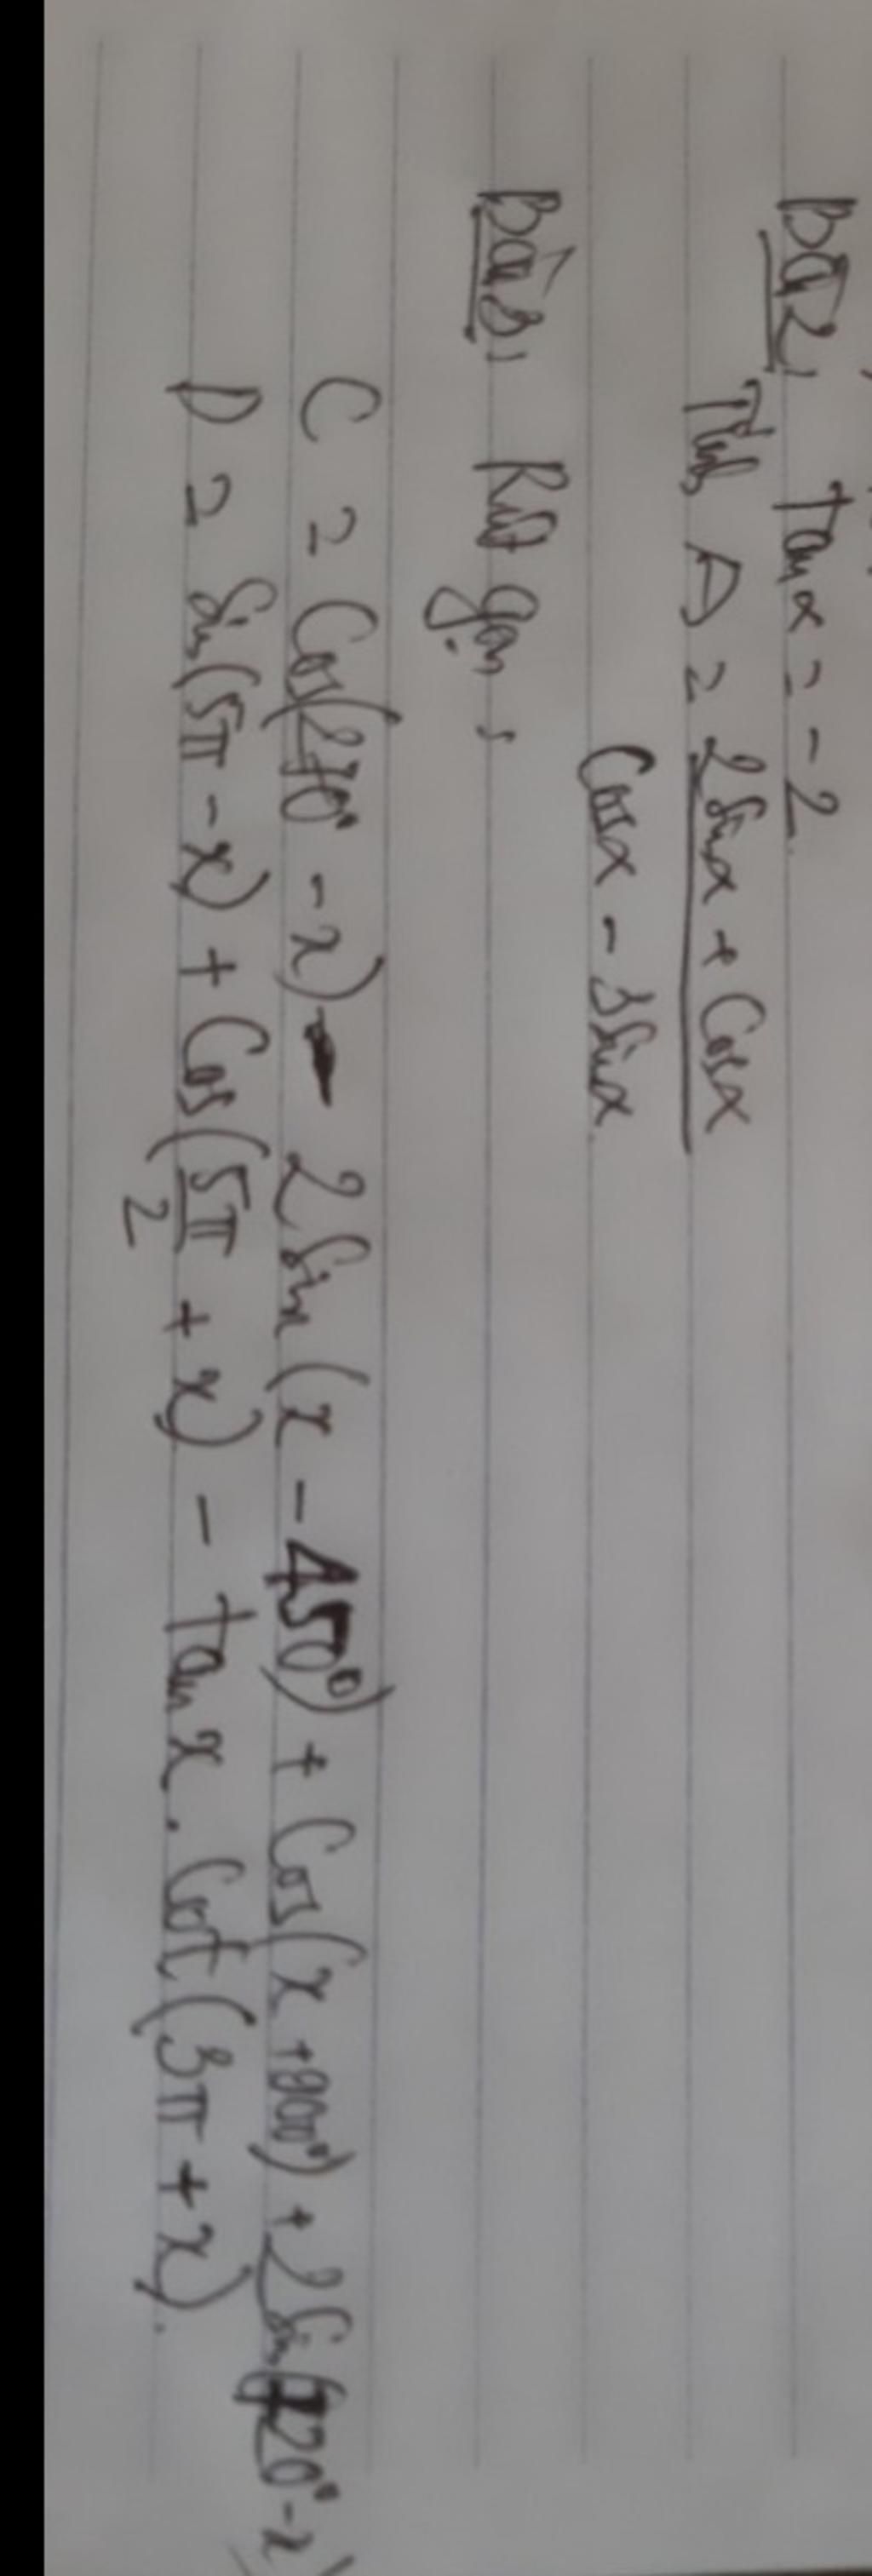 Bài 2, tan α = -2.
Tính A = 2 sin α + cos α
cos α - 3 sin α
Bài 3, Rút gọn :
C = Cos(270° - x) - 2 Sin (x - 450°) + Cos(x + 900°) + 2 Sin(720° - x)
D = Sin(5π - x) + Cos(5π/2 + x) - tan x . Cot (3π + x).